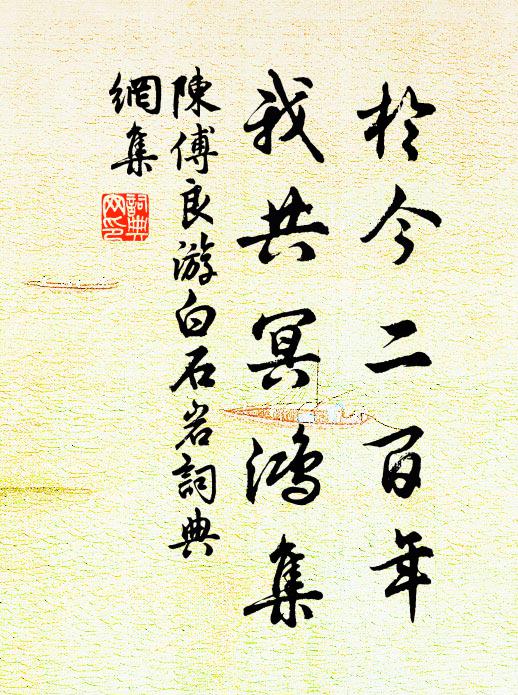 於今二百年
我共冥鴻集
陳傅良游白石岩詞典
網集
詞典
网印